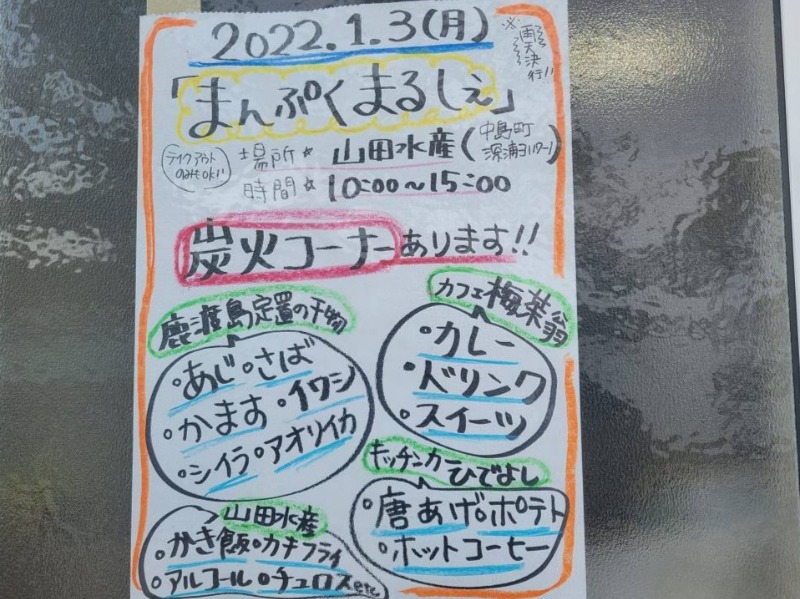 2022.1.3(月)
※雨天決行!!
「まんぷくまるしぇ」
テイクアウトのみもOK!!
場所☆山田水産(中島町深浦ヨリバーリ)
時間☆10:00〜15:00
炭火コーナーあります!!
鹿渡島定置の干物
・あじ・さば
・かます・イワシ
・シイラ・アオリイカ
カフェ梅茶翁
・カレー
・ドリンク
・スイーツ
キッチンカーひでよし
・唐あげ・ポテト
・ホットコーヒー
山田水産
・かき飯・カキフライ
・アルコール・チュロスetc